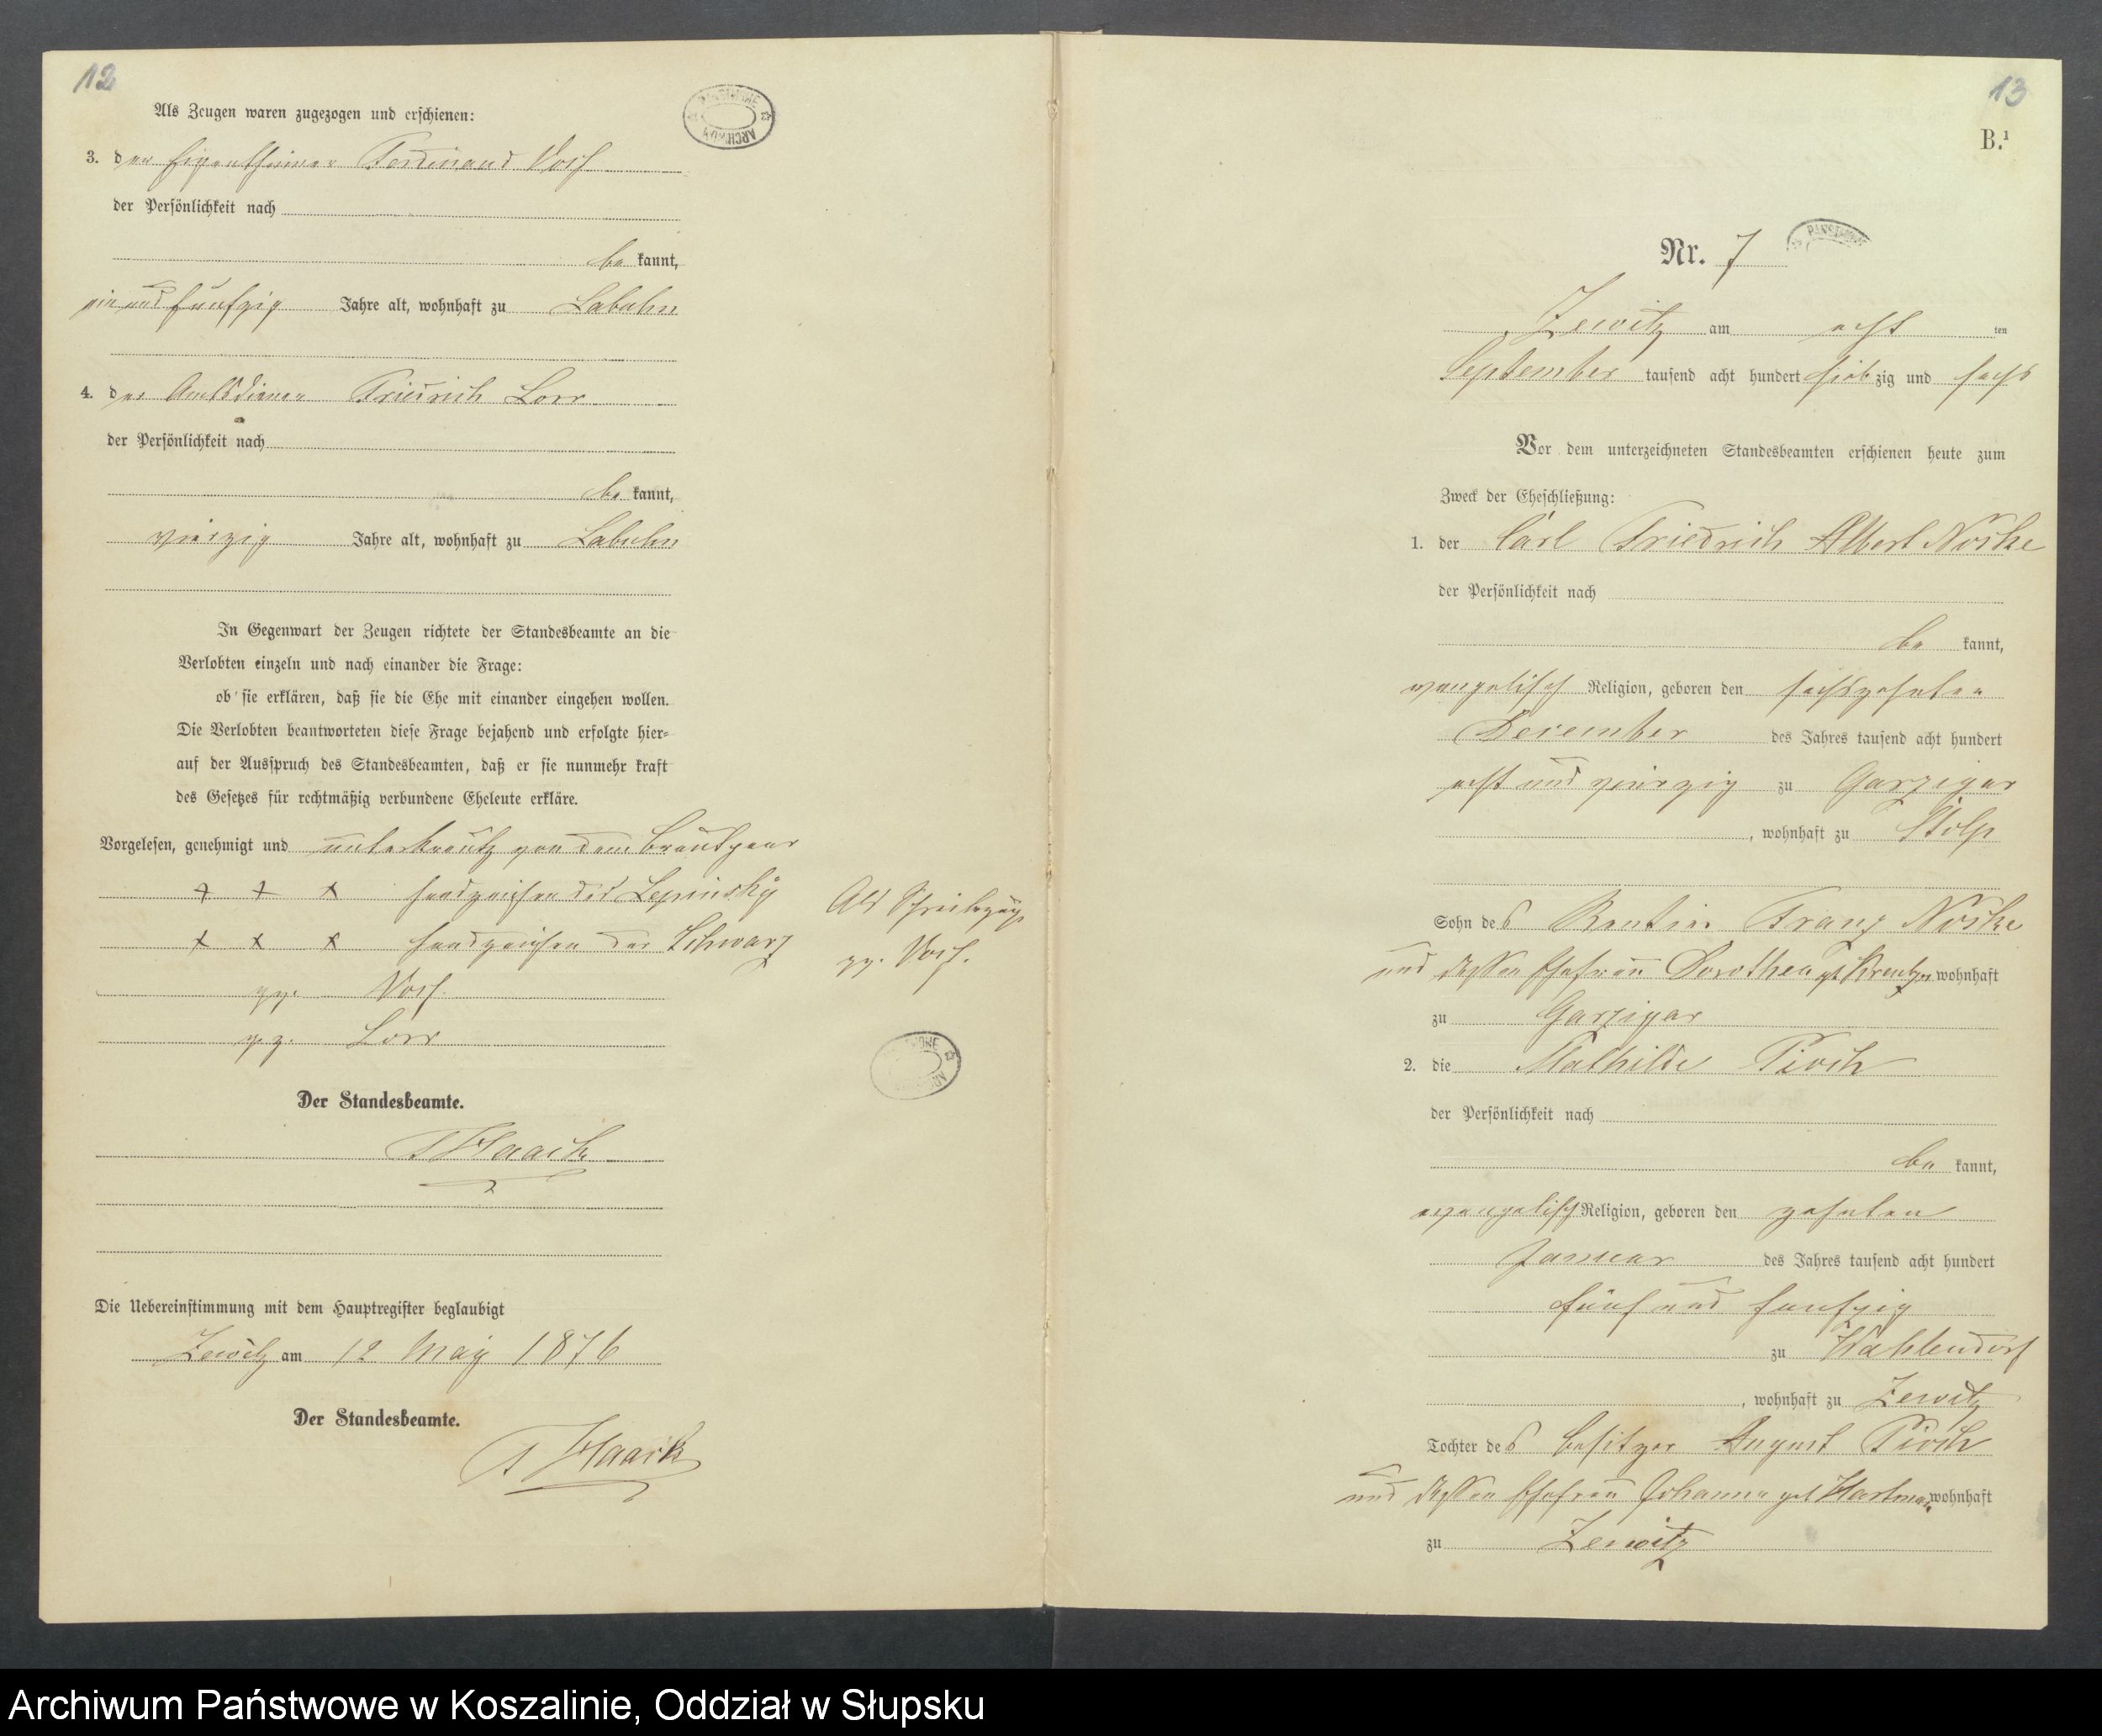 12
Als Zeugen waren zugezogen und erschienen:
3. der Eigenthümer Ferdinand Voss
der Persönlichkeit nach
be kannt,
ein und fünfzig Jahre alt, wohnhaft zu Labuhn
4. der Amtsdiener Friedrich Lorr
der Persönlichkeit nach
be kannt,
vierzig Jahre alt, wohnhaft zu Labuhn
In Gegenwart der Zeugen richtete der Standesbeamte an die
Verlobten einzeln und nach einander die Frage:
ob sie erklären, daß sie die Ehe mit einander eingehen wollen.
Die Verlobten beantworteten diese Frage bejahend und erfolgte hier-
auf der Ausspruch des Standesbeamten, daß er sie nunmehr kraft
des Gesetzes für rechtmäßig verbundene Eheleute erkläre.
Vorgelesen, genehmigt und unterkreutz von dem Brautpaar
+ + x Handzeichen des Lepinsky
x x x Handzeichen der Schwarz
Als Schreibzeuge
gz. Voss.
gz. Voss.
gz. Lorr
Der Standesbeamte.
Haack
Die Uebereinstimmung mit dem Hauptregister beglaubigt
Zewitz am 12 May 1876
Der Standesbeamte.
Haack
ARCHIWUM PAŃSTWOWE
13
B.¹
Nr. 7
Zewitz am acht ten
September tausend acht hundert siebzig und sechs
Vor dem unterzeichneten Standesbeamten erschienen heute zum
Zweck der Eheschließung:
1. der Carl Friedrich Albert Noske
der Persönlichkeit nach
be kannt,
evangelisch Religion, geboren den sechszehnten
December des Jahres tausend acht hundert
acht und vierzig zu Garzigar
, wohnhaft zu Stolp
Sohn des Rentier Franz Noske
und dessen Ehefrau Dorothea geb wohnhaft
zu Garzigar
2. die Mathilde Pioch
der Persönlichkeit nach
be kannt,
evangelisch Religion, geboren den zehnten
Januar des Jahres tausend acht hundert
fünf und funfzig
zu Wahlendorf
, wohnhaft zu Zewitz
Tochter des Besitzer August Pioch
und dessen Ehefrau Johanna geb Hartmann wohnhaft
zu Zewitz
Archiwum Państwowe w Koszalinie, Oddział w Słupsku